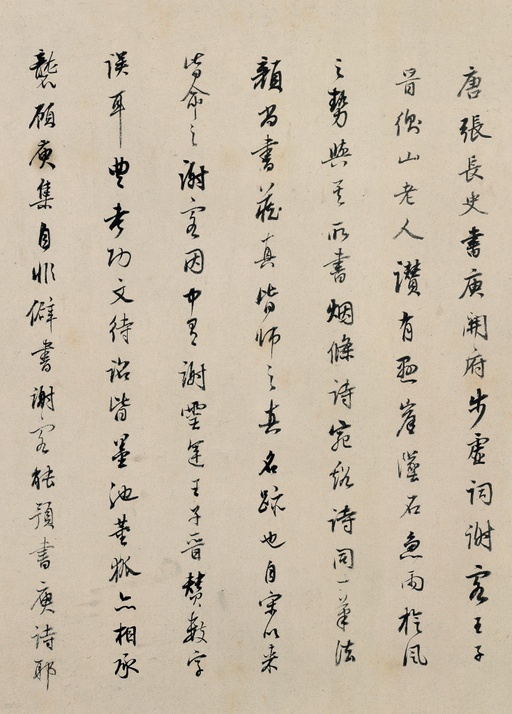 唐張長史書庾開府步虛詞謝客王子
晉衡山老人讚有懸崖墜石急雨旋風
之勢與其所書烟條詩宛谿詩同一筆法
顏尚書藏真皆師之真名跡也自宋以来
皆命之謝客因中有謝靈運王子晉賛數字
誤耳豐考功文待詔皆墨池董狐亦相承
襲顧庾集自非僻書謝客能預書庾詩耶